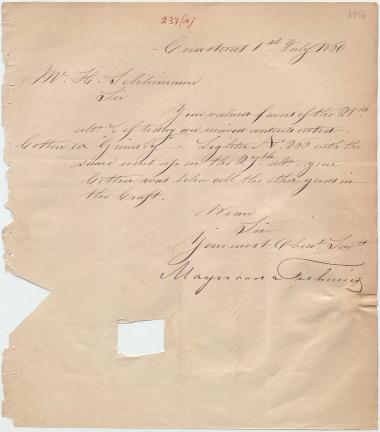 237(a)
1st July 1860
Mr H. Schliemann
Sir
Your valued favors of the 28th
ulto & of today are received contents noted
Cotton ex Grimsby Lighter No 265 with the
same went up on the 27th ulto your
Cotton was below all the other goods in
the Craft.
We are
Sir
Your most Obedt Servts